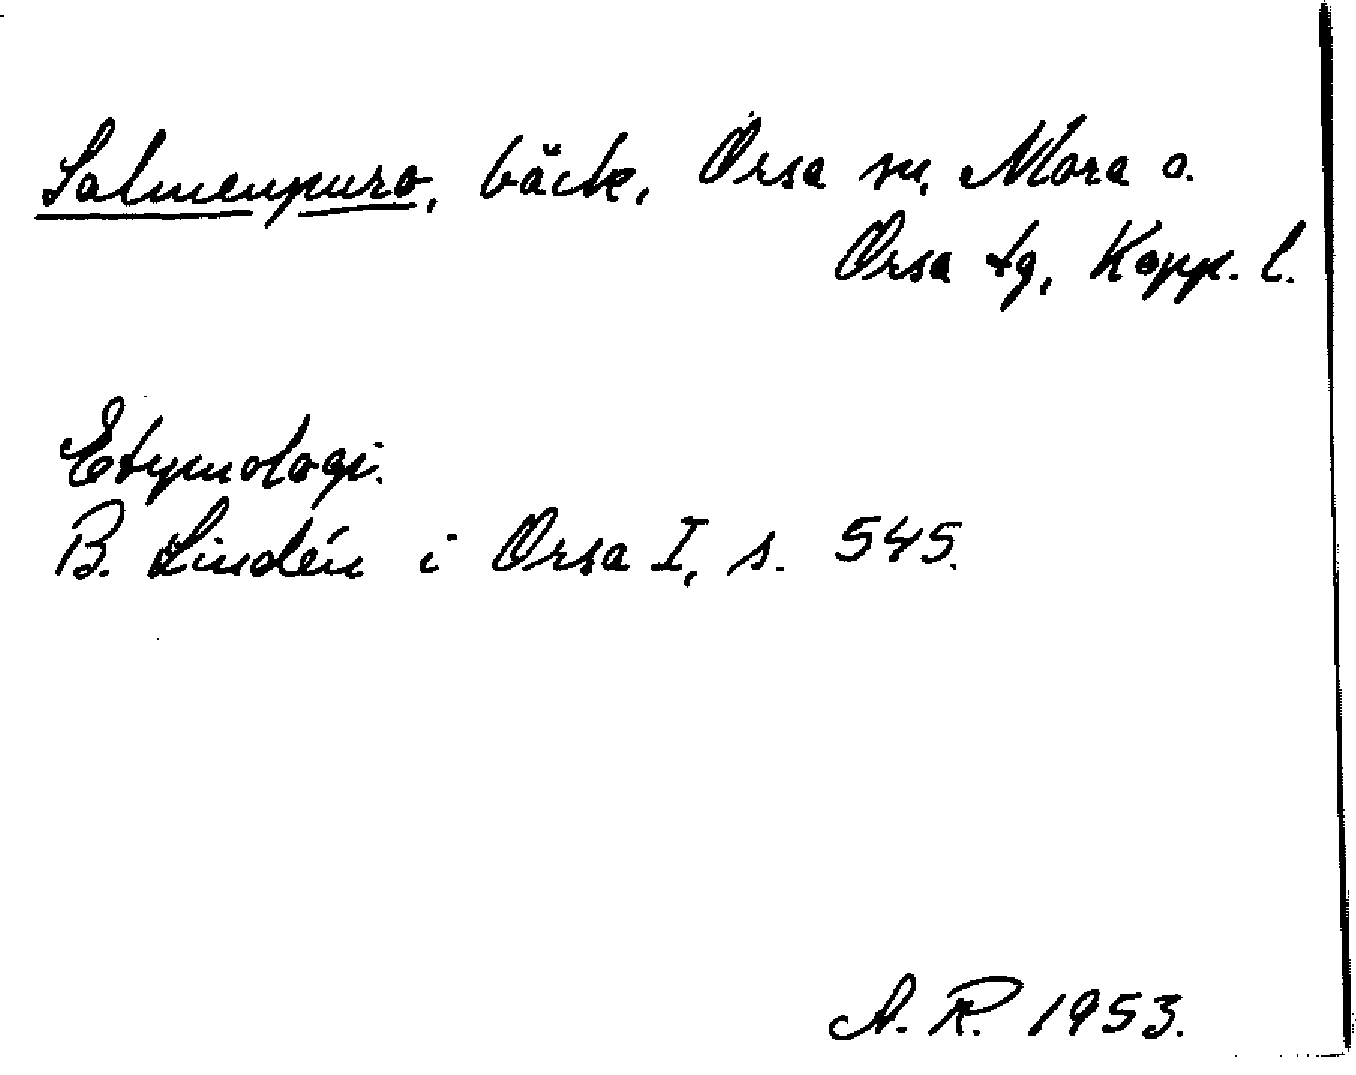 Salmenpuro, bäck, Orsa sn, Mora o.
Orsa tg, Kopp. l.
Etymologi.
B. Lindén i Orsa I, s. 545.
A. R. 1953.